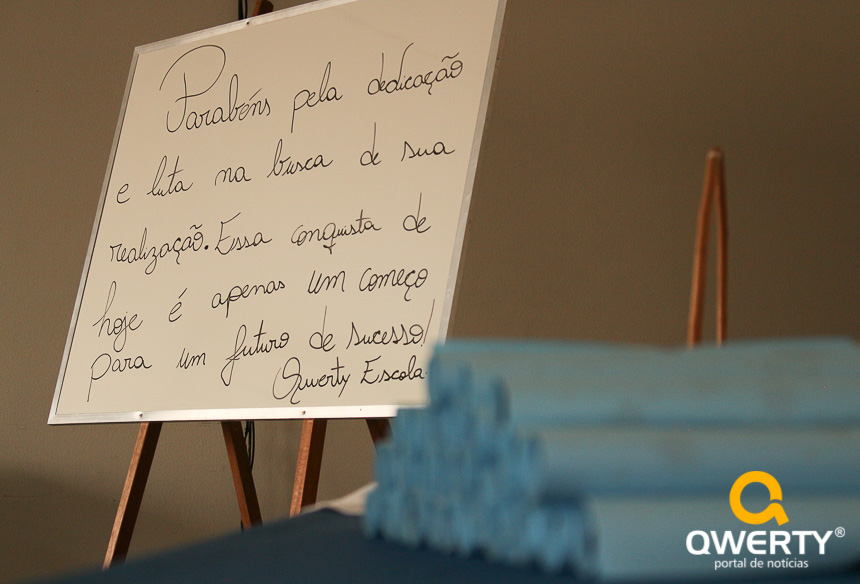 Parabéns pela dedicação
e luta na busca de sua
realização. Essa conquista de
hoje é apenas um começo
para um futuro de sucesso!
Qwerty Escola.
QWERTY®
portal de notícias